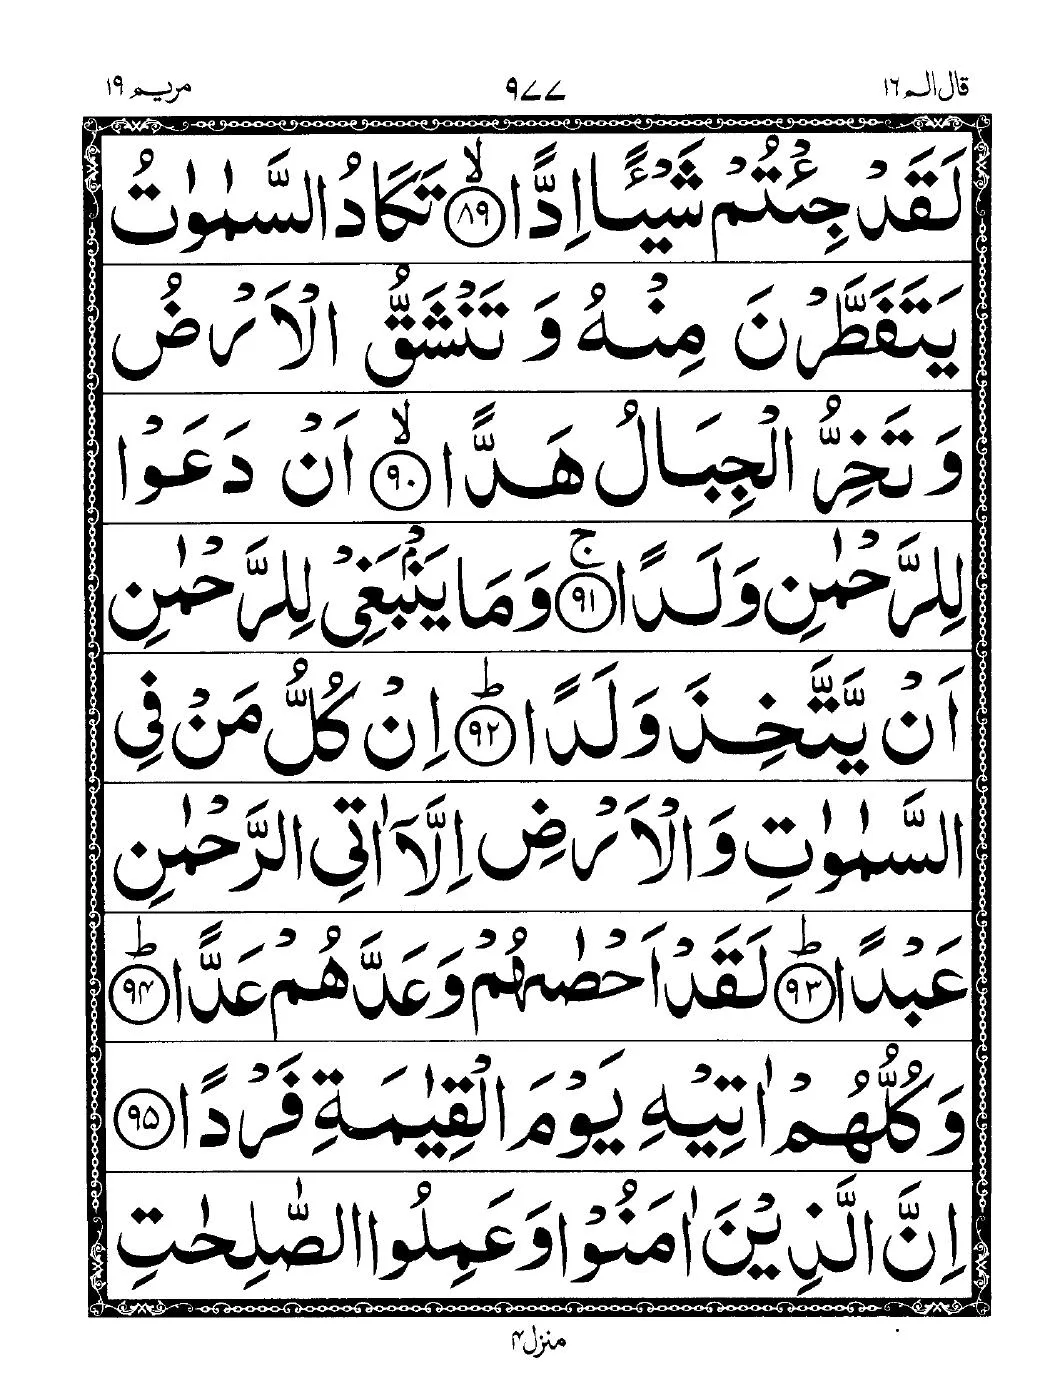 قال الم ١٦
٩٧٧
مريم ١٩
لَقَدْ جِئْتُمْ شَيْـًٔا اِدًّا ۙ﴿٨٩﴾ تَكَادُ السَّمٰوٰتُ
يَتَفَطَّرْنَ مِنْهُ وَ تَنْشَقُّ الْاَرْضُ
وَ تَخِرُّ الْجِبَالُ هَدًّا ۙ﴿٩٠﴾ اَنْ دَعَوْا
لِلرَّحْمٰنِ وَلَدًا ۚ﴿٩١﴾ وَمَا يَنْۢبَغِيْ لِلرَّحْمٰنِ
اَنْ يَّتَّخِذَ وَلَدًا ؕ﴿٩٢﴾ اِنْ كُلُّ مَنْ فِي
السَّمٰوٰتِ وَالْاَرْضِ اِلَّاۤ اٰتِي الرَّحْمٰنِ
عَبْدًا ؕ﴿٩٣﴾ لَقَدْ اَحْصٰىهُمْ وَعَدَّهُمْ عَدًّا ؕ﴿٩٤﴾
وَكُلُّهُمْ اٰتِيْهِ يَوْمَ الْقِيٰمَةِ فَرْدًا ﴿٩٥﴾
اِنَّ الَّذِيْنَ اٰمَنُوْا وَعَمِلُوا الصّٰلِحٰتِ
منزل ۴